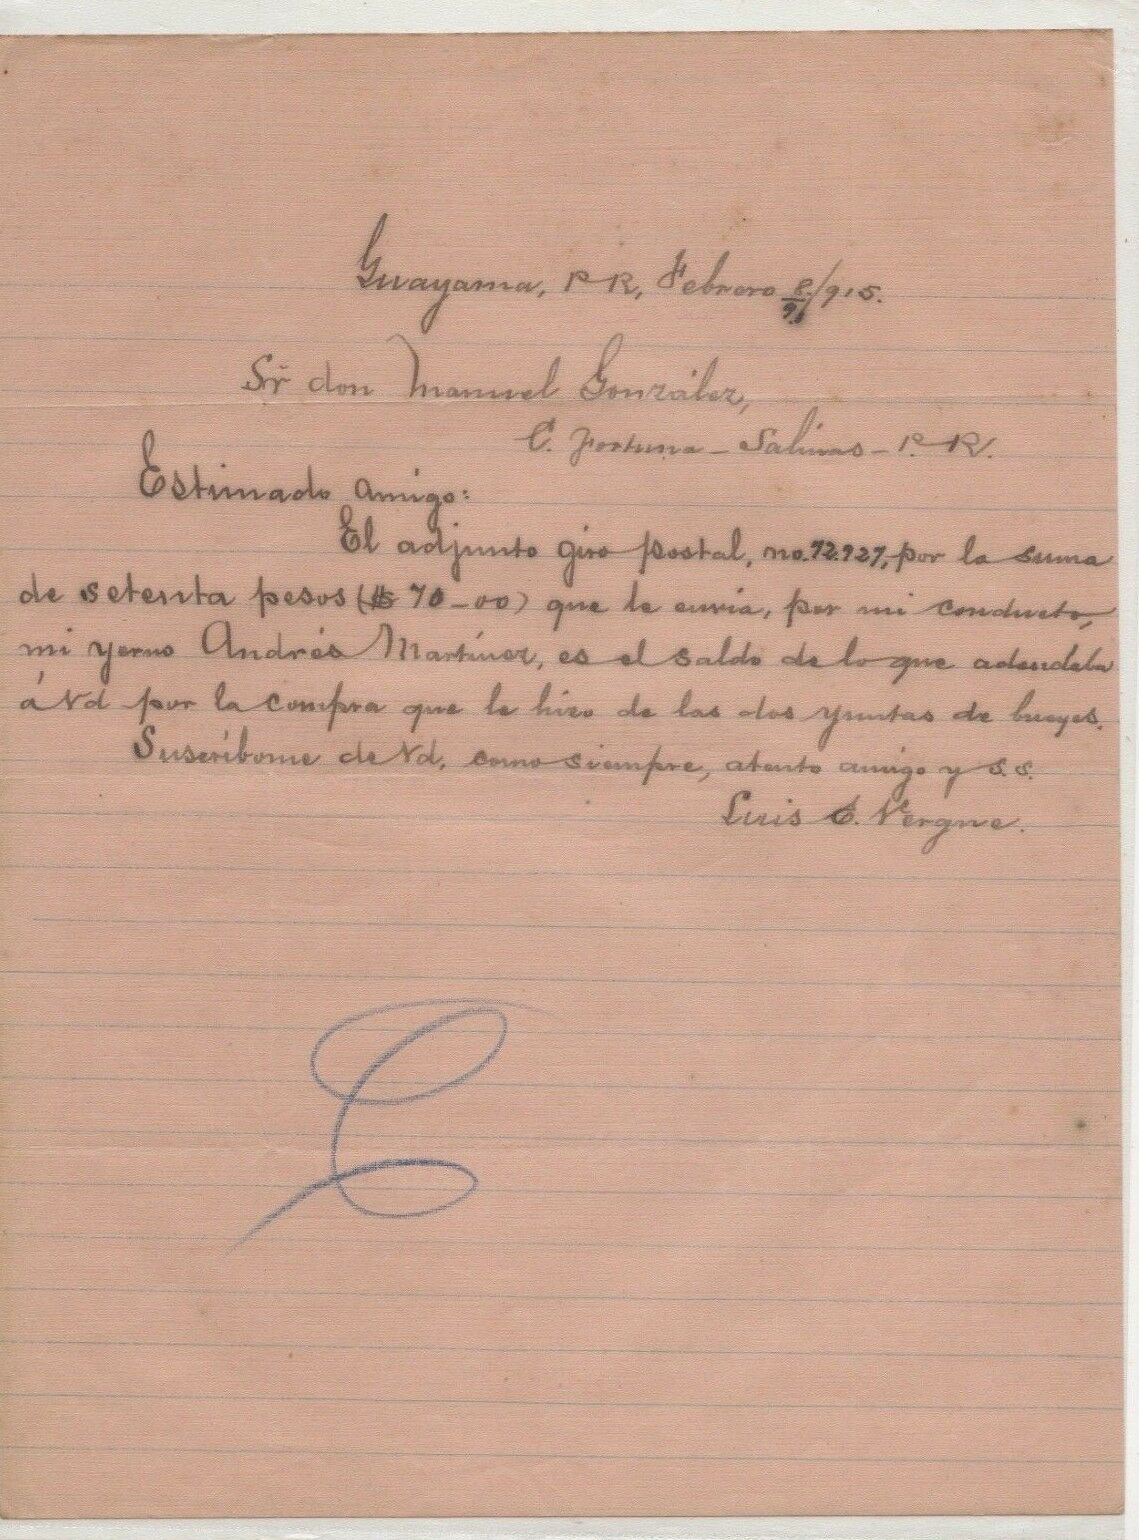 Guayama, P R, Febrero 8/915.
Sr don Manuel González,
C. Fortuna - Salinas - P. R.
Estimado amigo:
El adjunto giro postal, no. 72.727, por la suma
de setenta pesos ($ 70-00) que le envía, por mi conducto,
mi yerno Andrés Martínez, es el saldo de lo que adeudaba
á Vd por la compra que le hizo de las dos yuntas de bueyes.
Suscríbome de Vd. como siempre, atento amigo y s.s.
Luis C. Vergne.